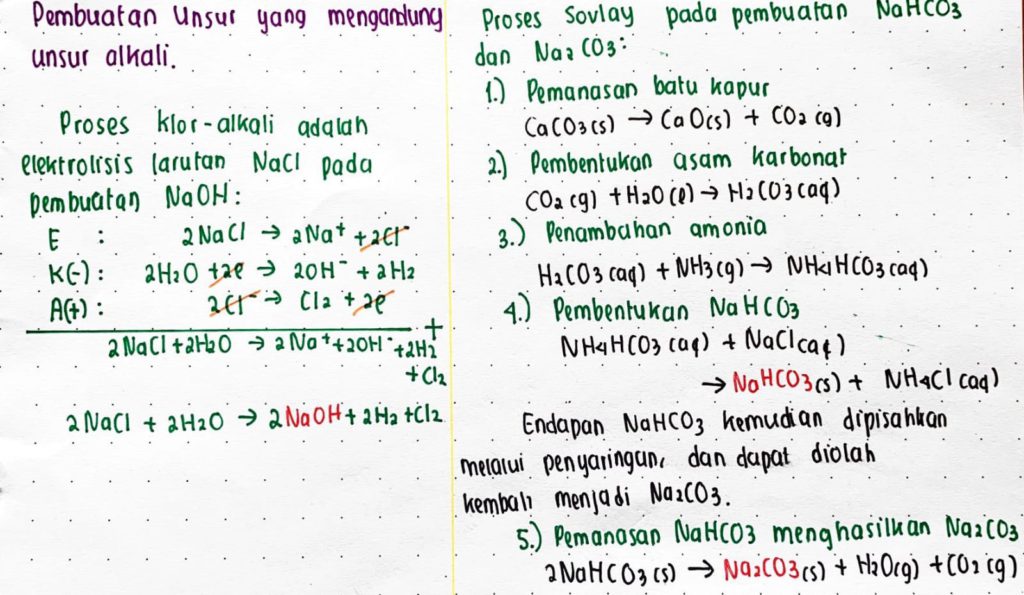 Pembuatan Unsur yang mengandung
unsur alkali.
Proses klor-alkali adalah
elektrolisis larutan NaCl pada
pembuatan NaOH:
E : 2NaCl → 2Na⁺ + 2Cl⁻
K(-) : 2H₂O + 2e → 2OH⁻ + 2H₂
A(+) : 2Cl⁻ → Cl₂ + 2e
+
2NaCl + 2H₂O → 2Na⁺ + 2OH⁻ + 2H₂
+ Cl₂
2NaCl + 2H₂O → 2NaOH + 2H₂ + Cl₂
Proses Sovlay pada pembuatan NaHCO₃
dan Na₂CO₃:
1.) Pemanasan batu kapur
CaCO₃(s) → CaO(s) + CO₂(g)
2.) Pembentukan asam karbonat
CO₂(g) + H₂O(l) → H₂CO₃(aq)
3.) Penambahan amonia
H₂CO₃(aq) + NH₃(g) → NH₄HCO₃(aq)
4.) Pembentukan NaHCO₃
NH₄HCO₃(aq) + NaCl(aq)
→ NaHCO₃(s) + NH₄Cl(aq)
Endapan NaHCO₃ kemudian dipisahkan
melalui penyaringan, dan dapat diolah
kembali menjadi Na₂CO₃.
5.) Pemanasan NaHCO₃ menghasilkan Na₂CO₃
2NaHCO₃(s) → Na₂CO₃(s) + H₂O(g) + CO₂(g)